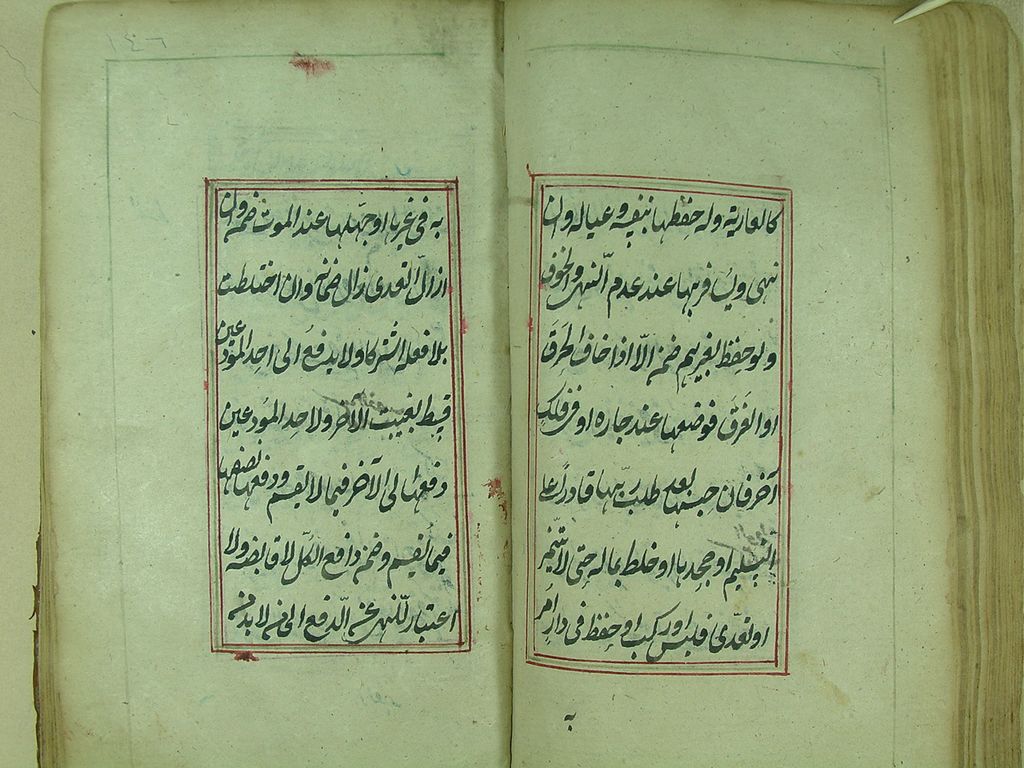 كالعارية وله حفظها بنفسه وعياله وان
نهى ويسافر بها عند عدم النهى والخوف
ولو حفظ بغيرهم ضمن الا اذا خاف الحرق
او الغرق فوضعها عند جاره او فى فلك
آخر فان حبسها بعد طلب ربها قادرا على
التسليم او جحدها او خلط بماله حتى لا تتميز
او تعدى فلبس او ركب او حفظ فى دار امر
به
به فى غيرها او جهلها عند الموت ضمن وان
ازال التعدى زال ضمانه وان اختلطت
بلا فعله اشتركا ولا يدفع الى احد المودعين
قسط بغيبت الآخر ولاحد المودعين
دفعها الى الآخر فيما لا يقسم ودفع نصفها
فيما يقسم وضمن دافع الكل لا قابضه ولا
اعتبار للنهى عن الدفع الى من لا بد منه
١٤٦